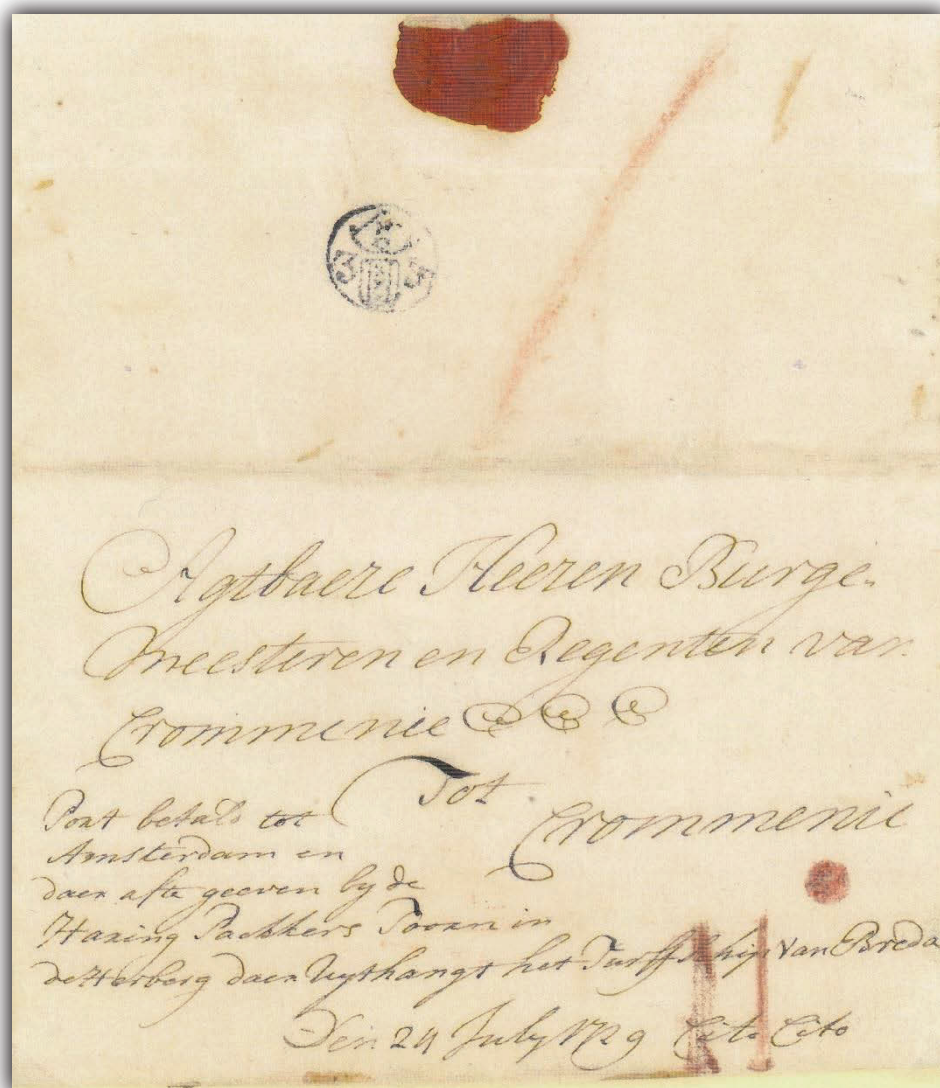 3 3
Agtbaere Heeren Burge-
meesteren en Regenten van
Crommenie
Tot
Crommenie
Port betald tot
Amsterdam en
daer afte geeven by de
Haring Packkers Toorn in
de Herberg daer Uythangt het Turff Schip Van Breda
Den 24 July 1729 Cito Cito